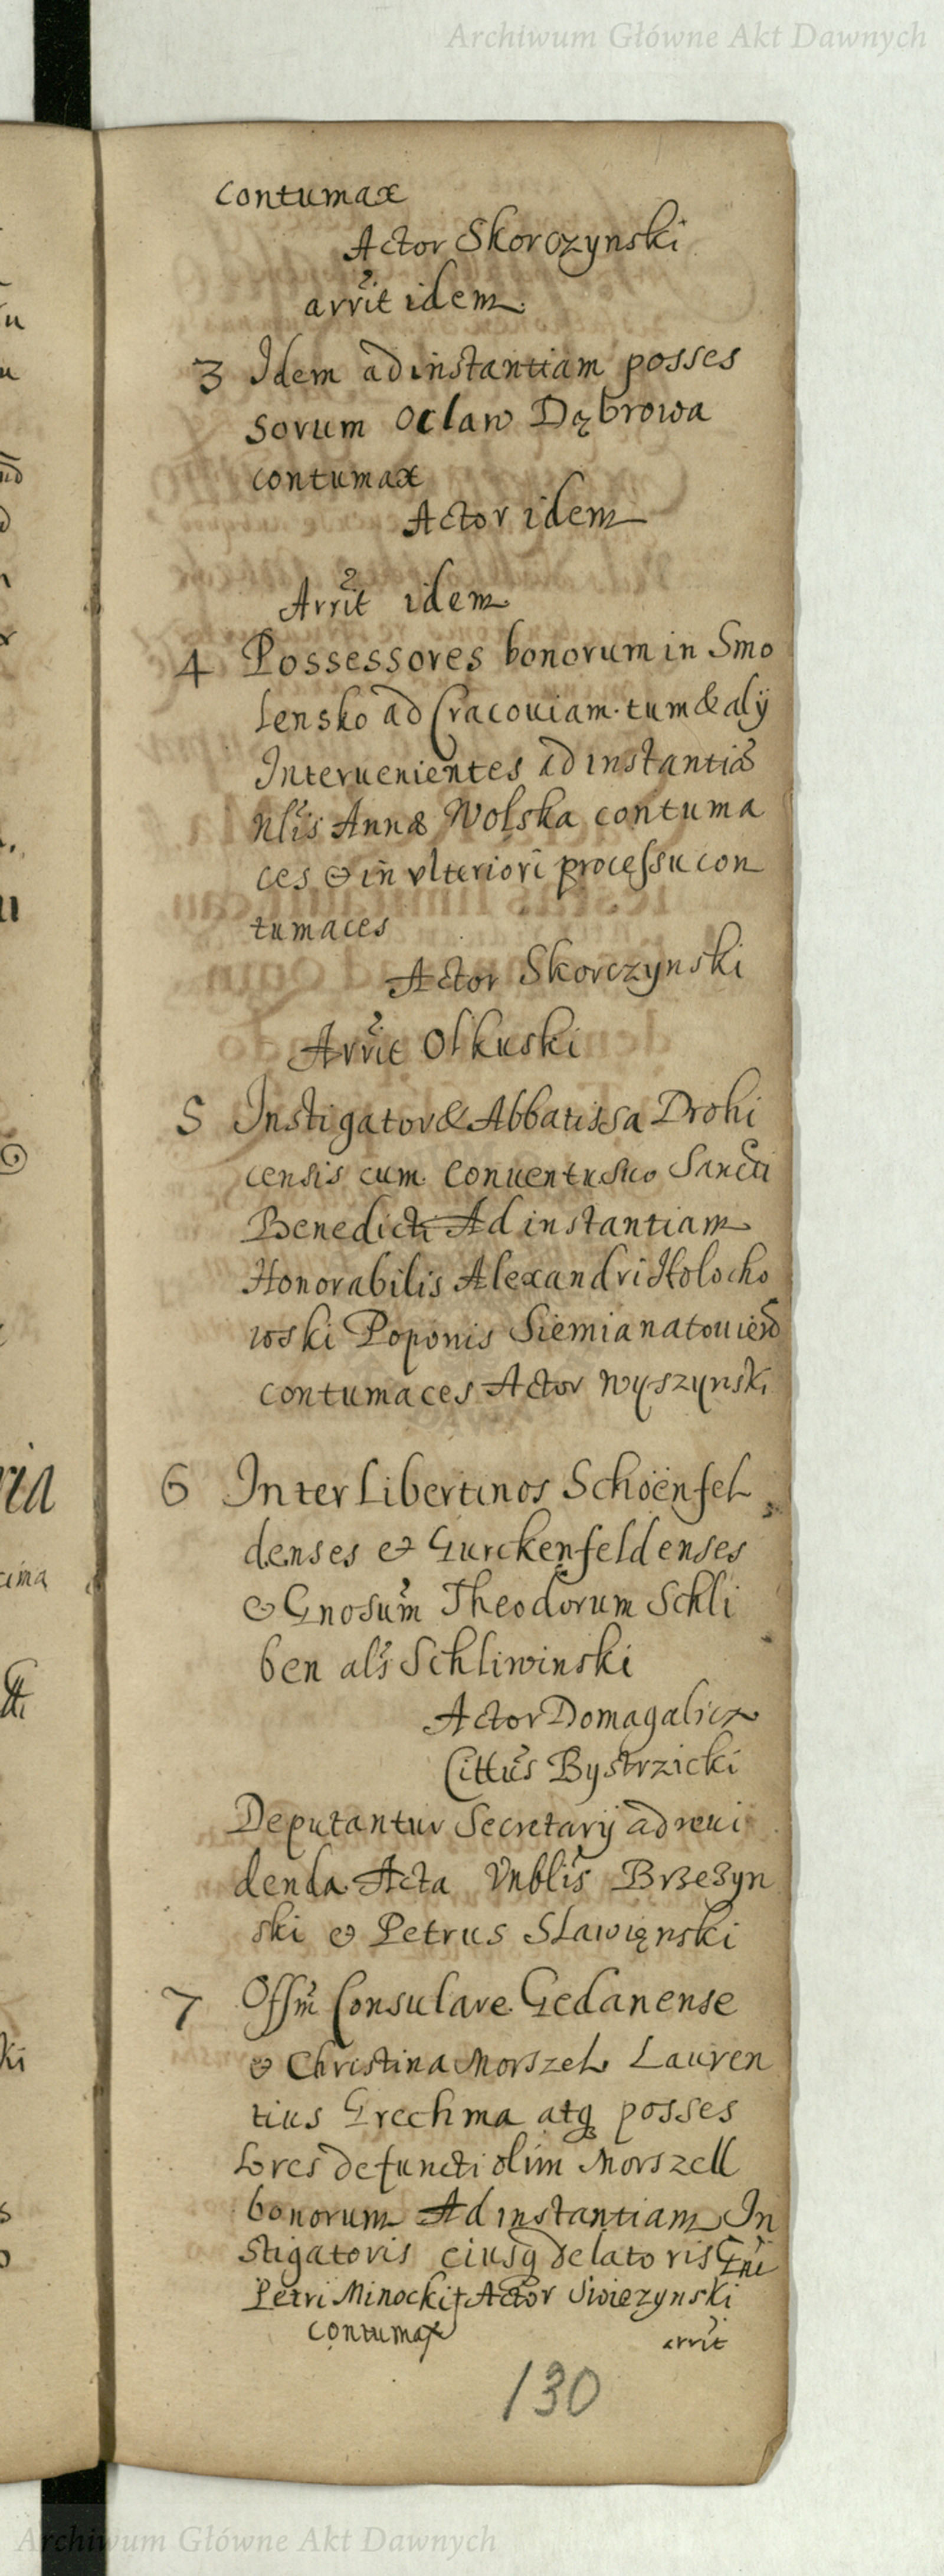 Archiwum Główne Akt Dawnych
contumax
Actor Skorczynski
arrit idem
3 Idem ad instantiam posses
sorum Oclaw Dąbrowa
contumax
Actor idem
Arrit idem
4 Possessores bonorum in Smo
lensko ad Cracouiam tum & alij
Interuenientes ad instantiã
Nlis Annæ Wolska contuma
ces & in vlteriori processu con
tumaces
Actor Skorczynski
Arrit Olkuski
5 Instigator & Abbatissa Drohi
censis cum Conuentu suo Sancti
Benedicti Ad instantiam
Honorabilis Alexandri Holocho
wski Poponis Siemianatouien
contumaces Actor Wyszynski
6 Inter Libertinos Schoenfel
denses & Gurckenfeldenses
& Gnosum Theodorum Schli
ben als Schliwinski
Actor Domagalicz
Cittus Bystrzicki
Deputantur Secretarij ad reui
denda Acta Vnblis Brzezyn
ski & Petrus Slawięnski
7 Offm Consulare Gedanense
& Christina Morszel Lauren
tius Grechma atq posses
sores defuncti olim Morszell
bonorum Ad instantiam In
stigatoris eiusq delatoris Gni
Petri Minocki Actor Swiezynski
contumax arrit
130
Archiwum Główne Akt Dawnych